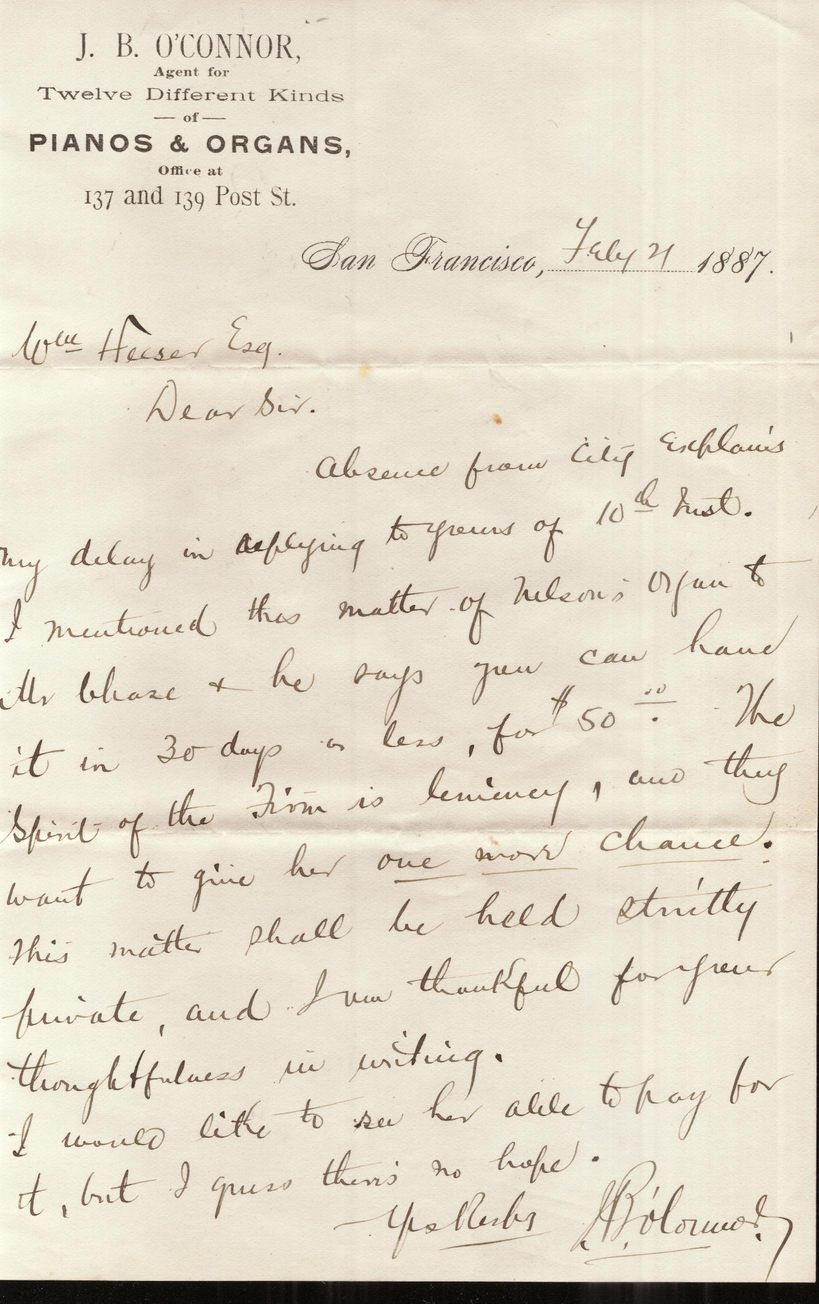 J. B. O'CONNOR,
Agent for
Twelve Different Kinds
— of —
PIANOS & ORGANS,
Office at
137 and 139 Post St.
San Francisco, Feby 21 1887.
Wm Heeser Esq.
Dear Sir.
Absence from City Explains
my delay in replying to yours of 10th Inst.
I mentioned this matter of Nelson's Organ to
Mr Chase & he says you can have
it in 30 days or less, for $50.00 The
Spirit of the Firm is leniency, and they
want to give her one more chance.
This matter shall be held strictly
private, and I am thankful for your
thoughtfulness in writing.
I would like to see her able to pay for
it, but I guess there's no hope.
J B O'Connor